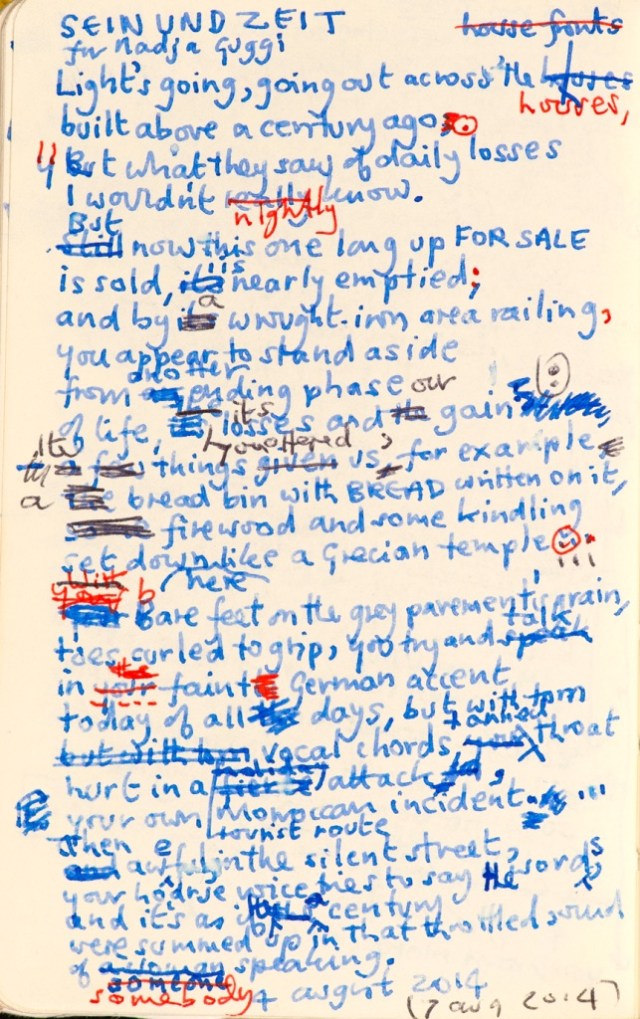 SEIN UND ZEIT
house fronts
for Nadja Guggi
Light's going, going out across the houses
houses,
built above a century ago,
But what they saw of daily losses
I wouldn't really know.
nightly
But
still now this one long up FOR SALE
is sold, it's nearly emptied;
a
and by wrought-iron area railing,
you appear to stand aside
another
from ending phase our
of life, its losses and gain
you offered,
things given us, for example
a bread bin with BREAD written on it,
firewood and some kindling
set down like a Grecian temple
here
Bare feet on the grey pavement's grain,
toes curled to grip, you try and speak
talk
in your faint German accent
the
today of all days, but with torn
tanned throat
but with torn vocal chords,
hurt in a attack,
your own Moroccan incident
tourist route
Then
and awful, in the silent street,
your hoarse voice tries to say words
and it's as if a century
were summed up in that throttled sound
of a woman speaking.
someone
somebody
7 august 2014
(7 aug 2014)